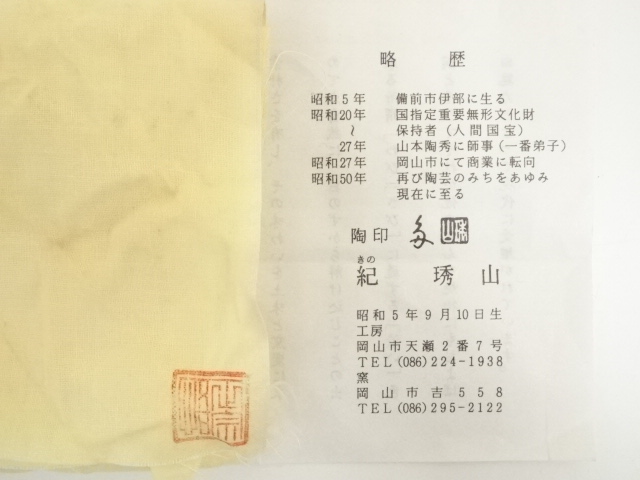 略歴
昭和5年 備前市伊部に生る
昭和20年 国指定重要無形文化財
〜 保持者(人間国宝)
27年 山本陶秀に師事(一番弟子)
昭和27年 岡山市にて商業に転向
昭和50年 再び陶芸のみちをあゆみ
現在に至る
陶印
きの
紀 琇山
昭和5年9月10日生
工房
岡山市天瀬2番7号
TEL(086)224-1938
窯
岡山市吉558
TEL(086)295-2122